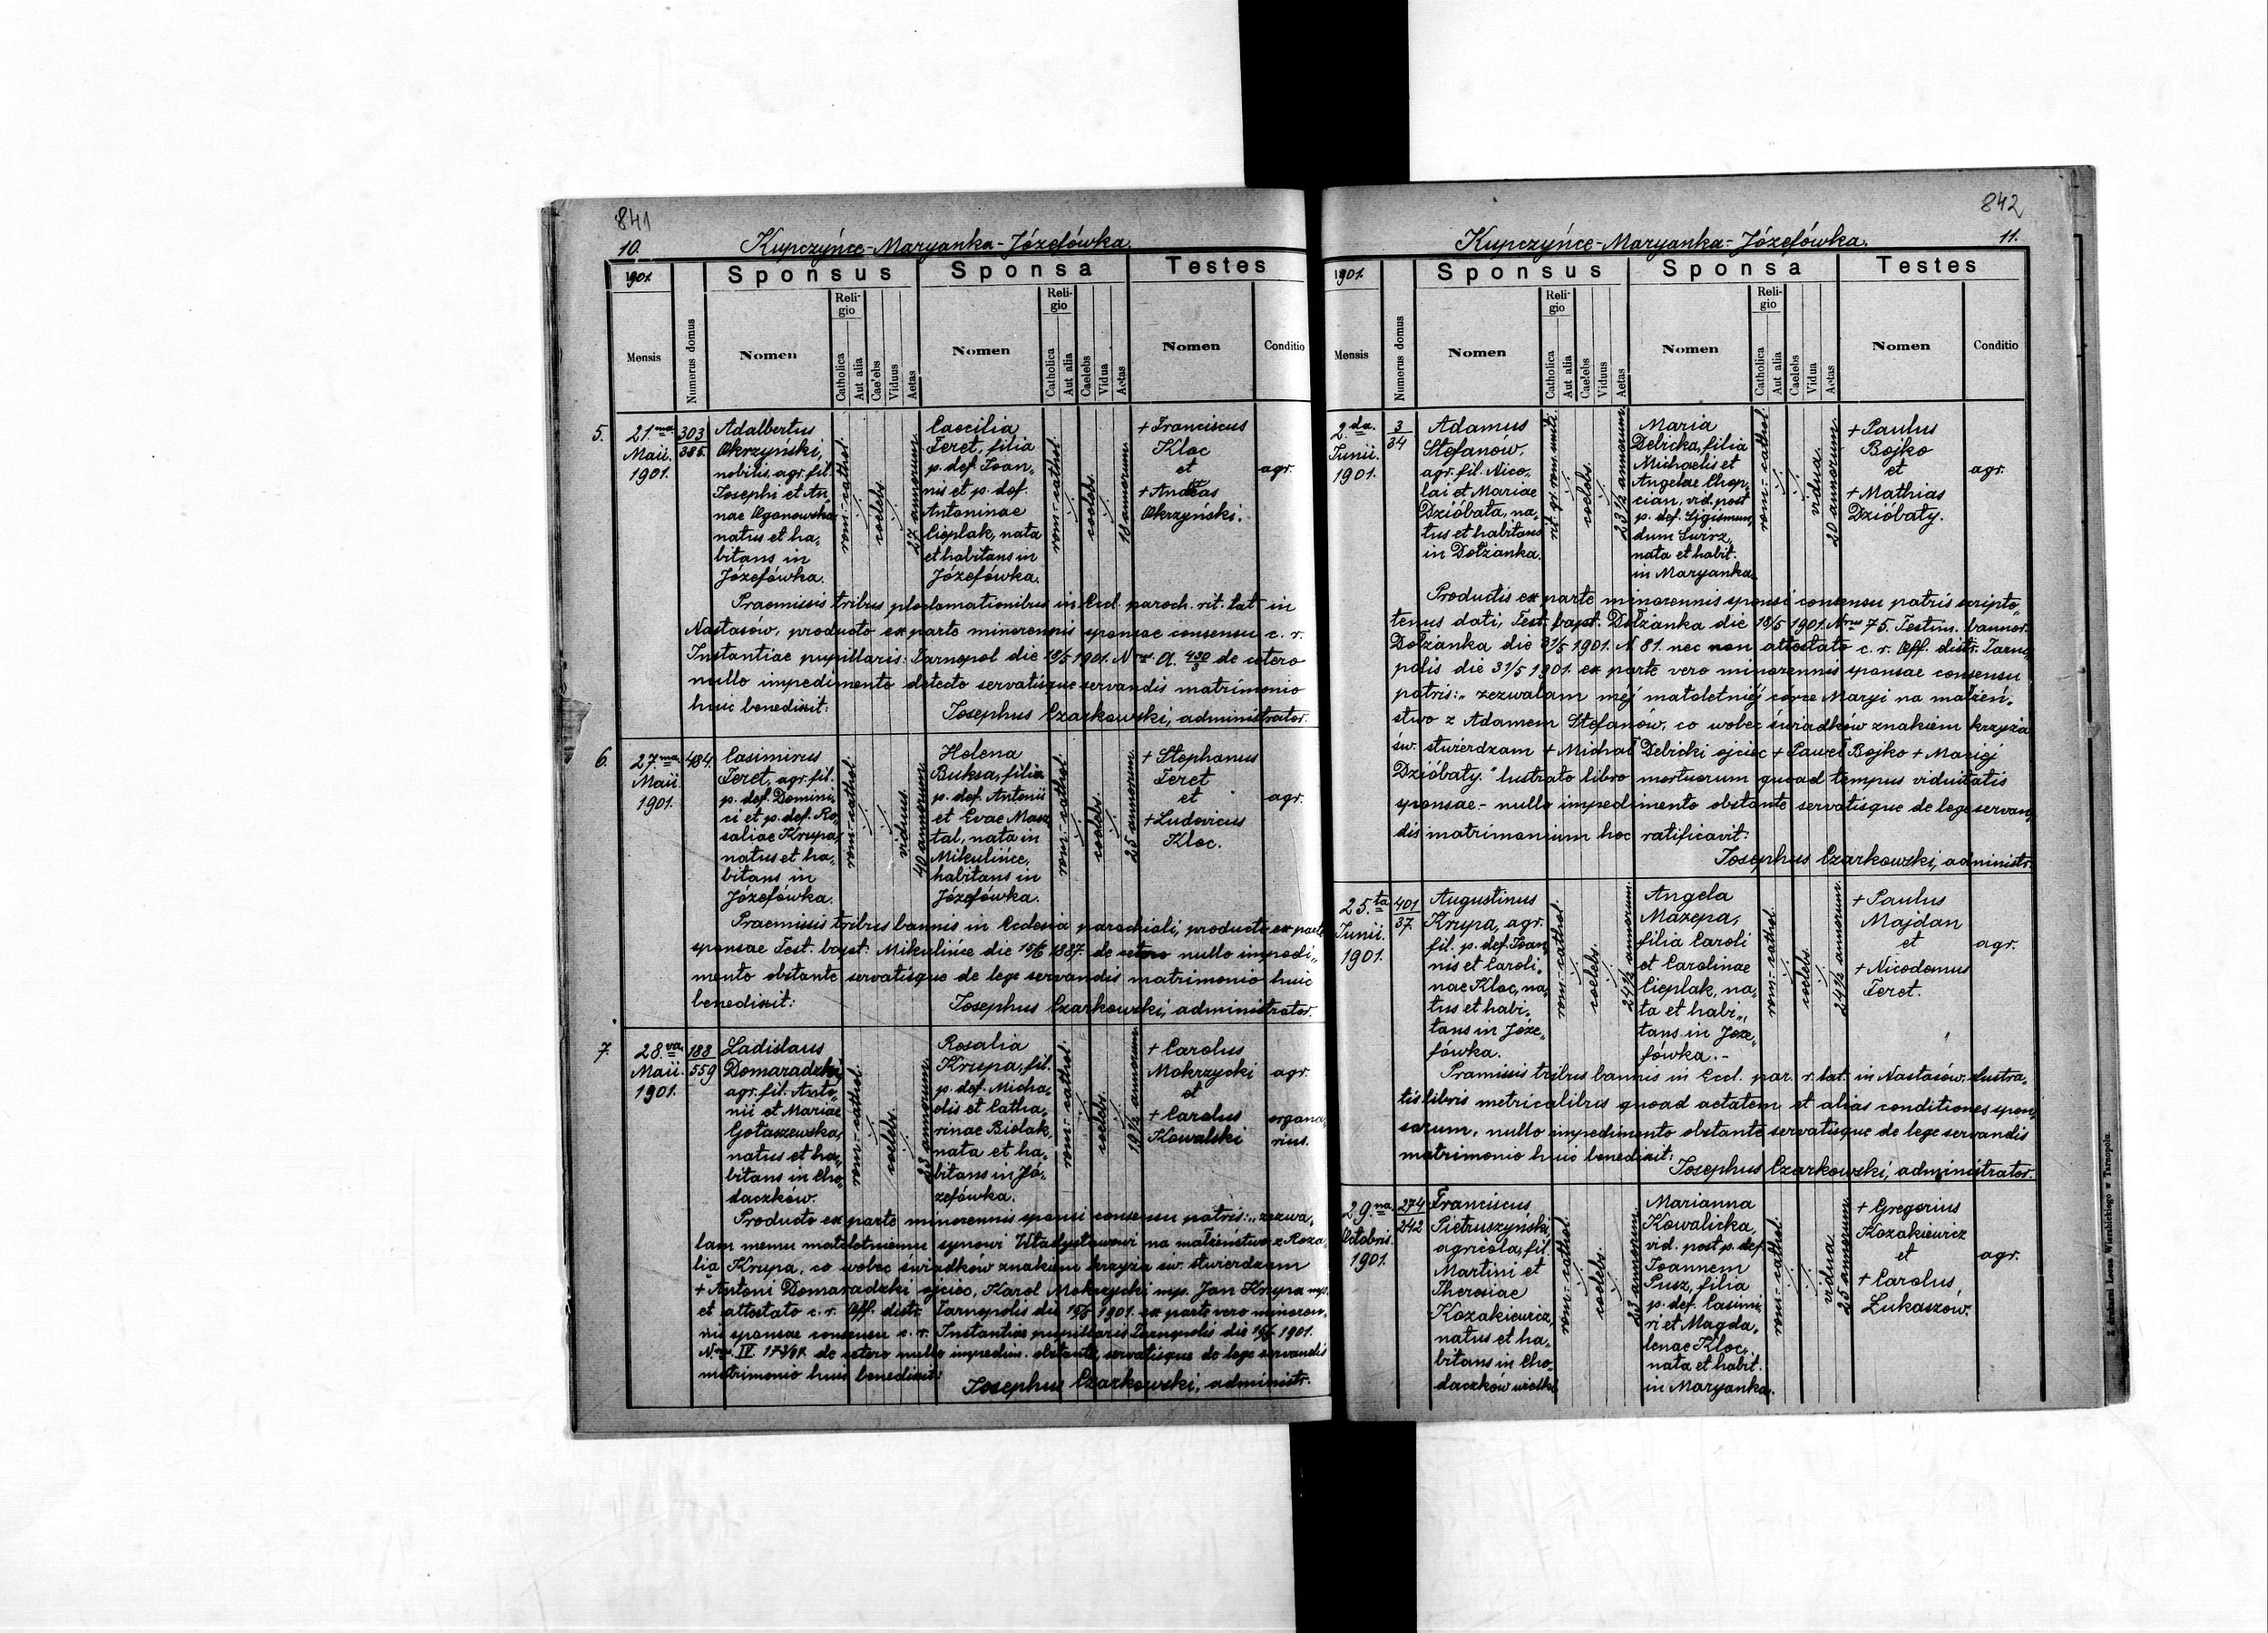 841
10. Kupczyńce-Maryanka-Józefówka.
1901.
Sponsus
Sponsa
Testes
Mensis
Numerus domus
Nomen
Religio
Catholica
Aut alia
Caelebs
Viduus
Aetas
Nomen
Religio
Catholica
Aut alia
Caelebs
Vidua
Aetas
Nomen
Conditio
5.
21ma
Maii.
1901.
303
385.
Adalbertus
Okrzyński,
nobilis, agr. fil.
Josephi et An„
nae Ogonowska
natus et ha„
bitans in
Józefówka.
rom.-cathol.
coelebs
27 annorum
Caecilia
Feret, filia
p. def. Joan„
nis et p. def.
Antoninae
Cieplak, nata
et habitans in
Józefówka.
rom.-cathol.
coelebs.
18 annorum
+ Franciscus
Kloc
et
+ Andreas
Okrzyński.
agr.
Praemissis tribus proclamationibus in Eccl. paroch. rit. lat in
Nastasów, producto ex parte minorennis sponsae consensu c. r.
Instantiae pupillaris: Tarnopol die 18/5 1901. Nrus A. 430/3 de cetero
nullo impedimento detecto servatisque servandis matrimonio
huic benedixit: Josephus Czarkowski, administrator.
6.
27.ma
Maii
1901.
484.
Casimirus
Feret, agr. fil.
p. def. Domini„
ci et p. def. Ro„
saliae Krupa,
natus et ha„
bitans in
Józefówka.
rom.-cathol.
viduus.
40 annorum
Helena
Buksa, filia
p. def. Antonii
et Evae Masz
tal, nata in
Mikulińce,
habitans in
Józefówka.
rom.-cathol.
coelebs.
25 annorum
+ Stephanus
Feret
et
+ Ludovicus
Kloc.
agr.
Praemissis tribus bannis in Ecclesia parochiali, producto ex parte
sponsae Test. bapt. Mikulińce die 15/6 1887. de cetero nullo impedi„
mento obstante servatisque de lege servandis matrimonio huic
benedixit: Josephus Czarkowski, administrator.
7.
28.va
Maii.
1901.
188
559
Ladislaus
Domaradzki,
agr. fil. Anto„
nii et Mariae
Gołaszewska,
natus et ha„
bitans in Cho„
daczków.
rom.-cathol.
coelebs.
23 annorum.
Rosalia
Krupa, fil.
p. def. Micha„
elis et Catha„
rinae Bielak,
nata et ha„
bitans in Jó„
zefówka.
rom.-cathol.
coelebs.
19½ annorum
+ Carolus
Mokrzycki
et
+ Carolus
Kowalski
agr.
organa„
rius.
Producto ex parte minorennis sponsi consensu patris: „zezwa„
lam memu małoletniemu synowi Władysławowi na małżeństwo z Roza„
lią Krupa, co wobec świadków znakiem krzyża św. stwierdzam
+ Antoni Domaradzki ojciec, Karol Mokrzycki mp. Jan Krupa mp.
et attestato c. r. Off. distr. Tarnopolis die 19/5 1901. ex parte vero minoren„
nis sponsae consensu c. r. Instantiae pupillaris Tarnopolis die 1901.
Nrus IV. 173/01. de cetero nullo impedim. obstante, servatisque de lege servandis
matrimonio huic benedixit: Josephus Czarkowski, administr.
842
Kupczyńce-Maryanka-Józefówka. 11.
1901.
Sponsus
Sponsa
Testes
Mensis
Numerus domus
Nomen
Religio
Catholica
Aut alia
Caelebs
Viduus
Aetas
Nomen
Religio
Catholica
Aut alia
Caelebs
Vidua
Aetas
Nomen
Conditio
2.da
Junii.
1901.
3
34
Adamus
Stefanów,
agr. fil. Nico„
lai et Mariae
Dzióbata, na„
tus et habitans
in Dołżanka.
rit. gr. rom. unit.
coelebs.
23½ annorum.
Maria
Debicka, filia
Michaelis et
Angelae Chop„
cian, vid. post
p. def. Sigismun„
dum Świrz,
nata et habit.
in Maryanka.
rom.-cathol.
vidua.
20 annorum.
+ Paulus
Bojko
et
+ Mathias
Dzióbaty.
agr.
Productis ex parte minorennis sponsi consensu patris scripto„
tenus dati, Test. bapt. Dołżanka die 18/5 1901. Nrus 75. Testim. bannor.
Dołżanka die 31/5 1901. N 81. nec non attestato c. r. Off. distr. Tarno„
polis die 31/5 1901. ex parte vero minorennis sponsae consensu
patris: „zezwalam mej małoletniéj córce Maryi na małżeń„
stwo z Adamem Stefanów, co wobec świadków znakiem krzyża
św. stwierdzam + Michał Debicki ojciec + Paweł Bojko + Maciej
Dzióbaty." lustrato libro mortuorum quoad tempus viduitatis
sponsae - nullo impedimento obstante servatisque de lege servan„
dis matrimonium hoc ratificavit:
Josephus Czarkowski, administr.
25.ta
Junii.
1901.
401
37.
Augustinus
Krupa, agr.
fil. p. def. Joan„
nis et Caroli„
nae Kloc, na„
tus et habi„
tans in Józe„
fówka.
rom.-cathol.
coelebs.
24½ annorum.
Angela
Mazepa,
filia Caroli
et Carolinae
Cieplak, na„
ta et habi„
tans in Józe„
fówka.-
rom.-cathol.
coelebs.
24½ annorum.
+ Paulus
Majdan
et
+ Nicodemus
Feret.
agr.
Pramissis tribus bannis in Eccl. par. r. lat. in Nastasów, lustra„
tis libris metricalibus quoad aetatem et alias conditiones spon„
sorum, nullo impedimento obstante servatisque de lege servandis
matrimonio huic benedixit: Josephus Czarkowski, administrator.
29.na
Octobris.
1901.
274
242
Franciscus
Pietruszyński,
agricola, fil.
Martini et
Theresiae
Kozakiewicz,
natus et ha„
bitans in Cho„
daczków wielki
rom.-cathol.
coelebs.
23 annorum.
Marianna
Kowalicka,
vid. post p. def.
Joannem
Pusz, filia
p. def. Casimi„
ri et Magda„
lenae Kloc,
nata et habit.
in Maryanka.
rom.-cathol.
vidua.
25 annorum.
+ Gregorius
Kozakiewicz
et
+ Carolus
Łukaszów.
agr.
Z drukarni Leona Wierzbickiego w Tarnopolu.